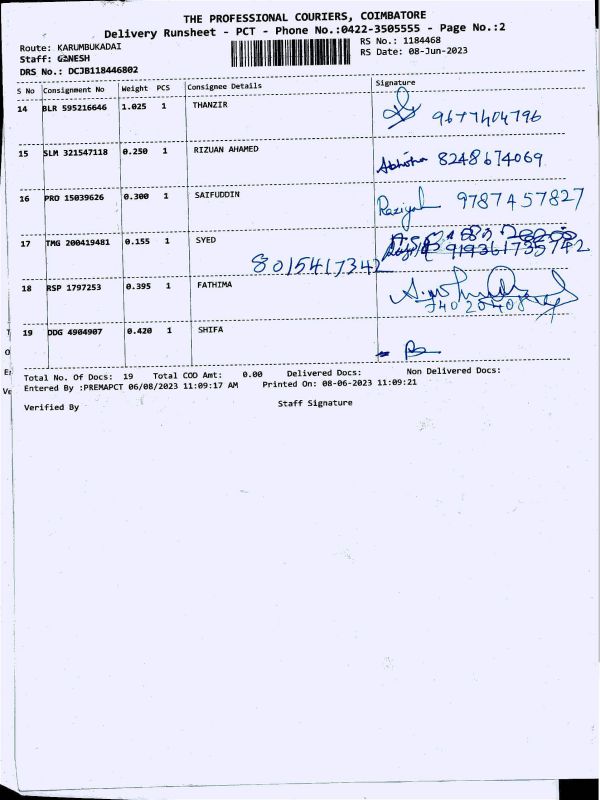 THE PROFESSIONAL COURIERS, COIMBATORE
Delivery Runsheet - PCT - Phone No.:0422-3505555 - Page No.:2
Route: KARUMBUKADAI
RS No.: 1184468
Staff: GANESH
RS Date: 08-Jun-2023
DRS No.: DCJB118446802
S No Consignment No Weight PCS Consignee Details Signature
14 BLR 595216646 1.025 1 THANZIR
9677404796
15 SLM 321547118 0.250 1 RIZUAN AHAMED
8248674069
16 PRO 15039626 0.300 1 SAIFUDDIN
Raziyah 9787457827
17 TMG 200419481 0.155 1 SYED
8015417342
18 RSP 1797253 0.395 1 FATHIMA
19 DDG 4904907 0.420 1 SHIFA
Total No. Of Docs: 19 Total COD Amt: 0.00 Delivered Docs: Non Delivered Docs:
Entered By :PREMAPCT 06/08/2023 11:09:17 AM Printed On: 08-06-2023 11:09:21
Verified By Staff Signature